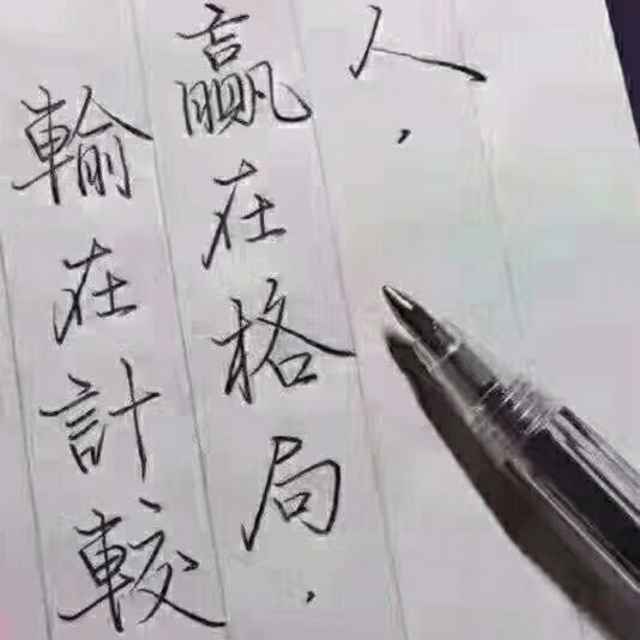 人，
贏在格局.
輸在計較